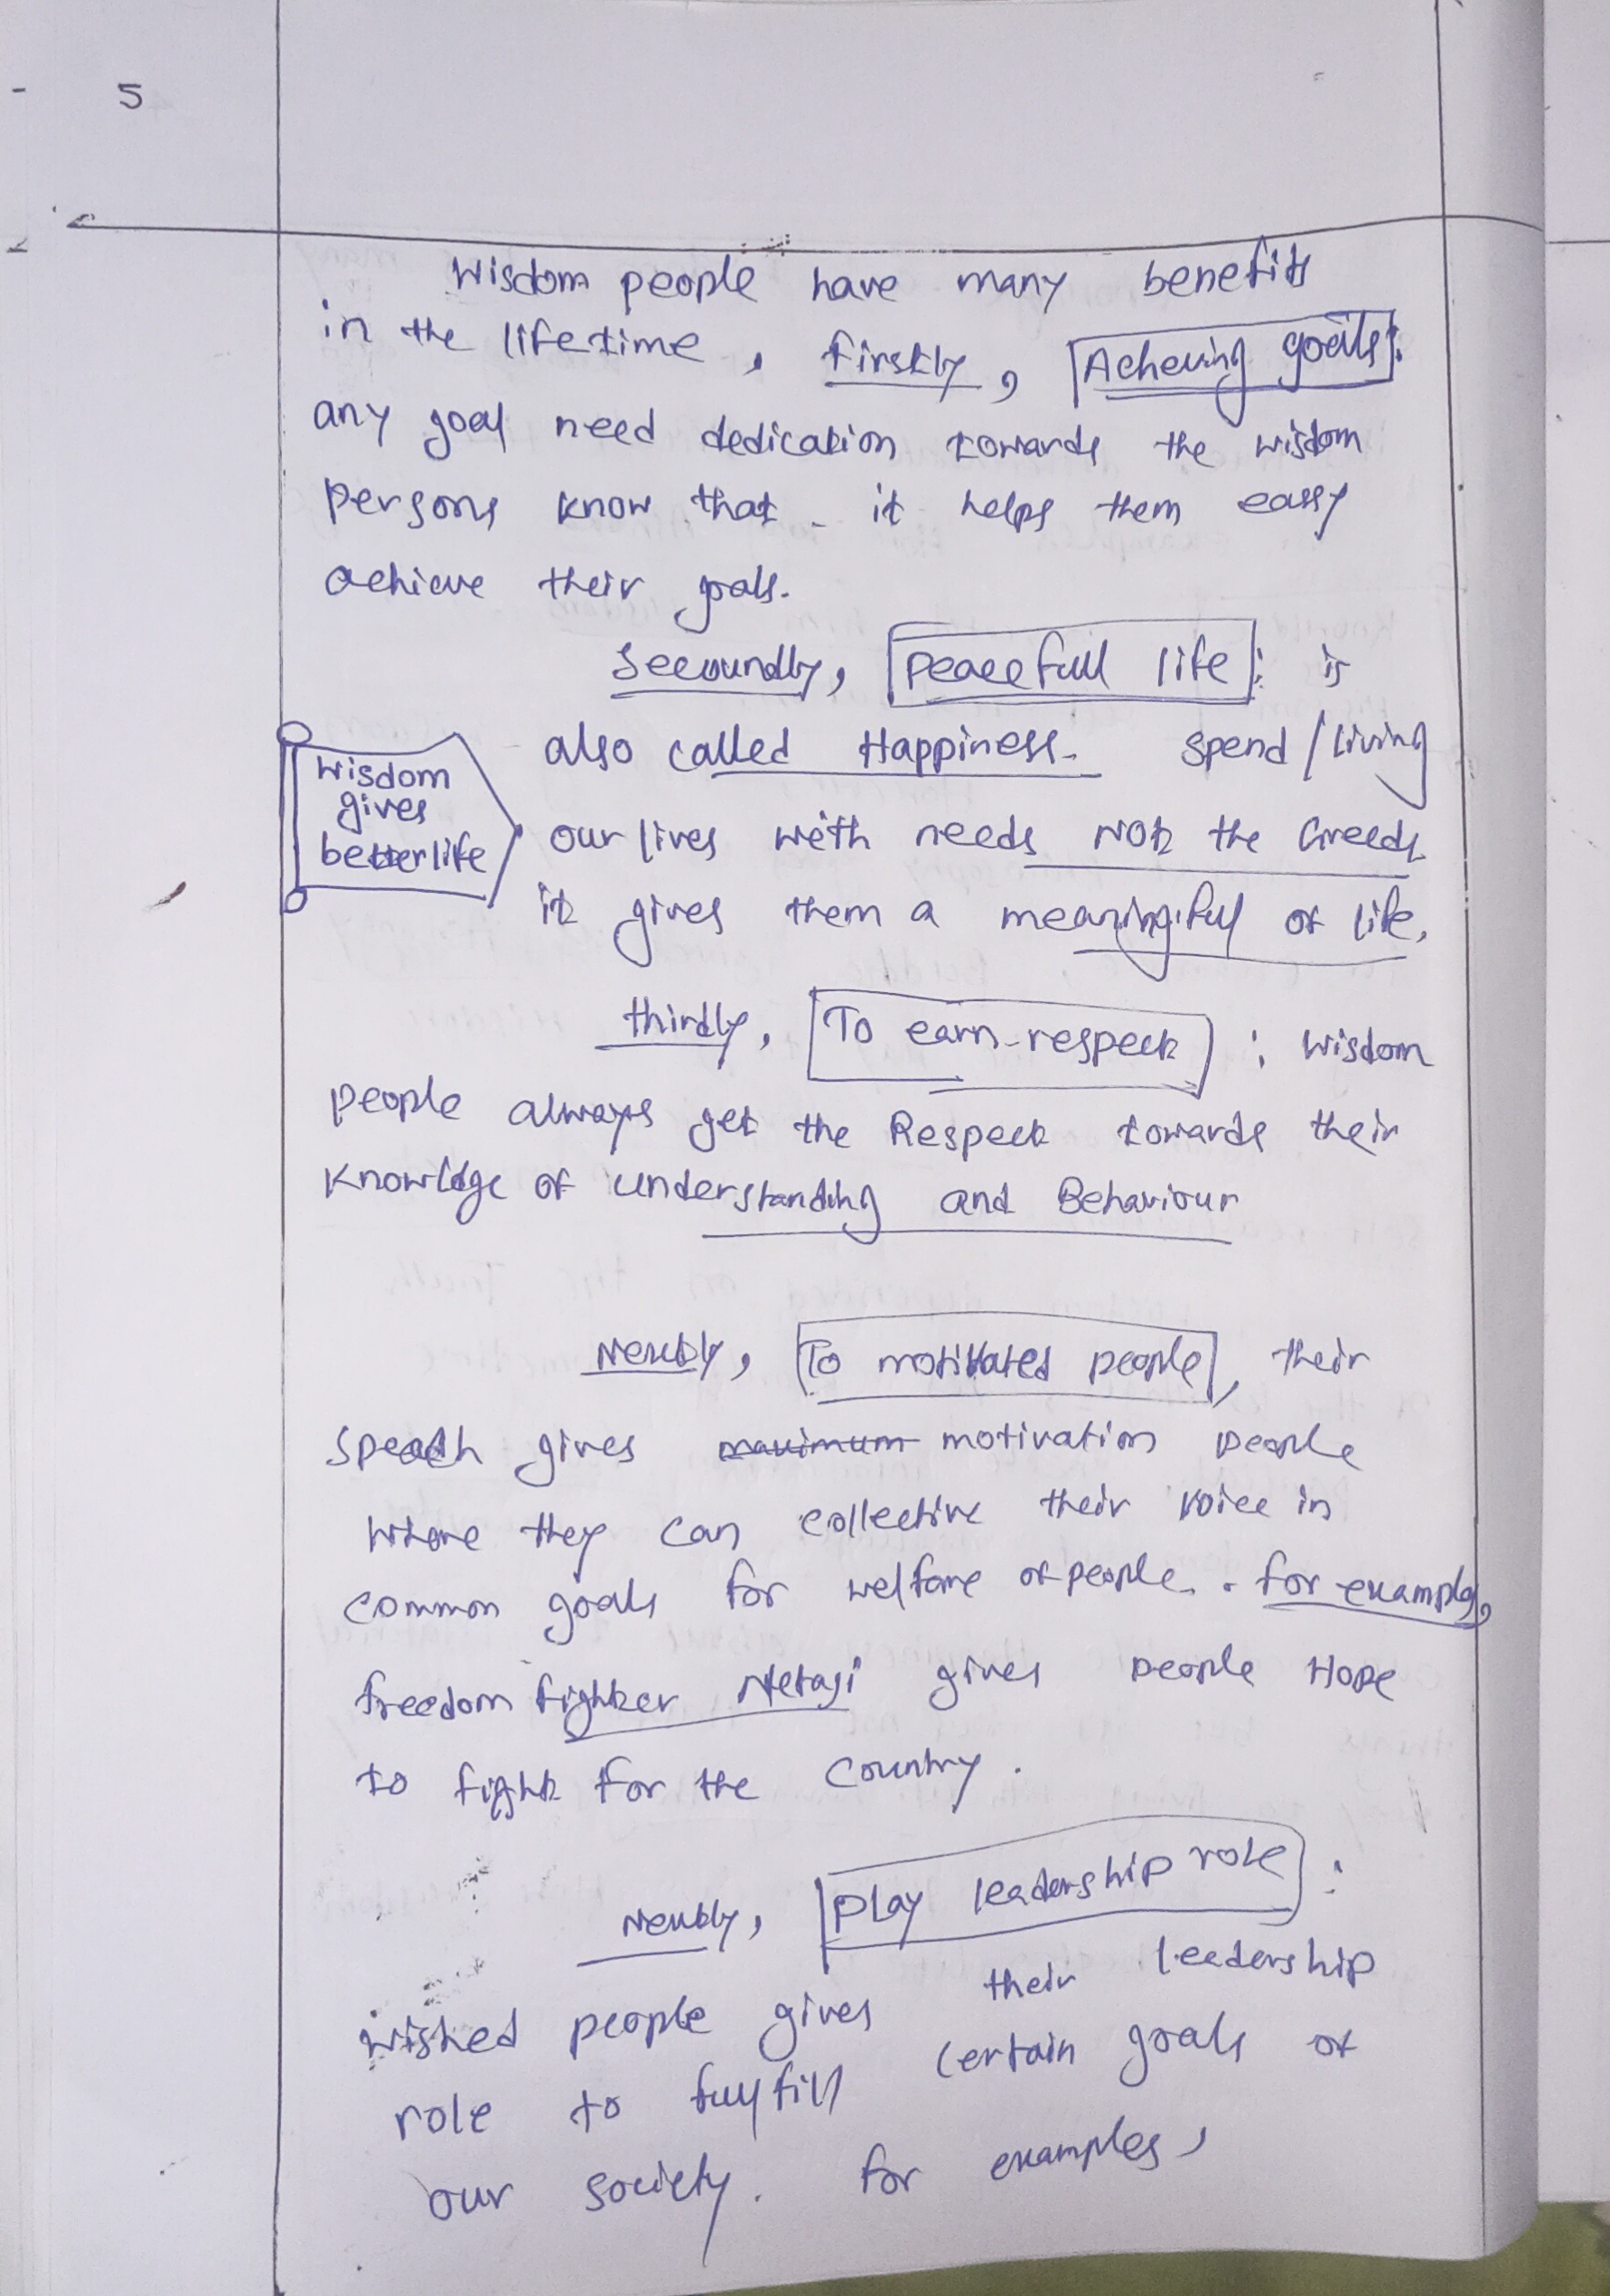 5
Wisdom people have many benefits
in the lifetime, firstly, Acheving goals:
any goal need dedication towards the wisdom
persons know that. it helps them easy
achieve their goals.
Secoundly, peacefull life: is
also called Happiness. spend/living
Wisdom
gives
better life
our lives with needs Not the Greeds.
it gives them a meaningful of life.
thirdly, To earn respect : Wisdom
people always get the Respect towards their
knowldge of understanding and Behaviour
Nextly, To motivated people, their
speach gives maximum motivation people
where they can collective their voice in
common goals for welfare of people. for example,
freedom fighter Netaji gives people Hope
to fight for the country.
Nextly, play leadership role :
wished people gives their leadership
role to fullfill certain goals of
our society. for examples,